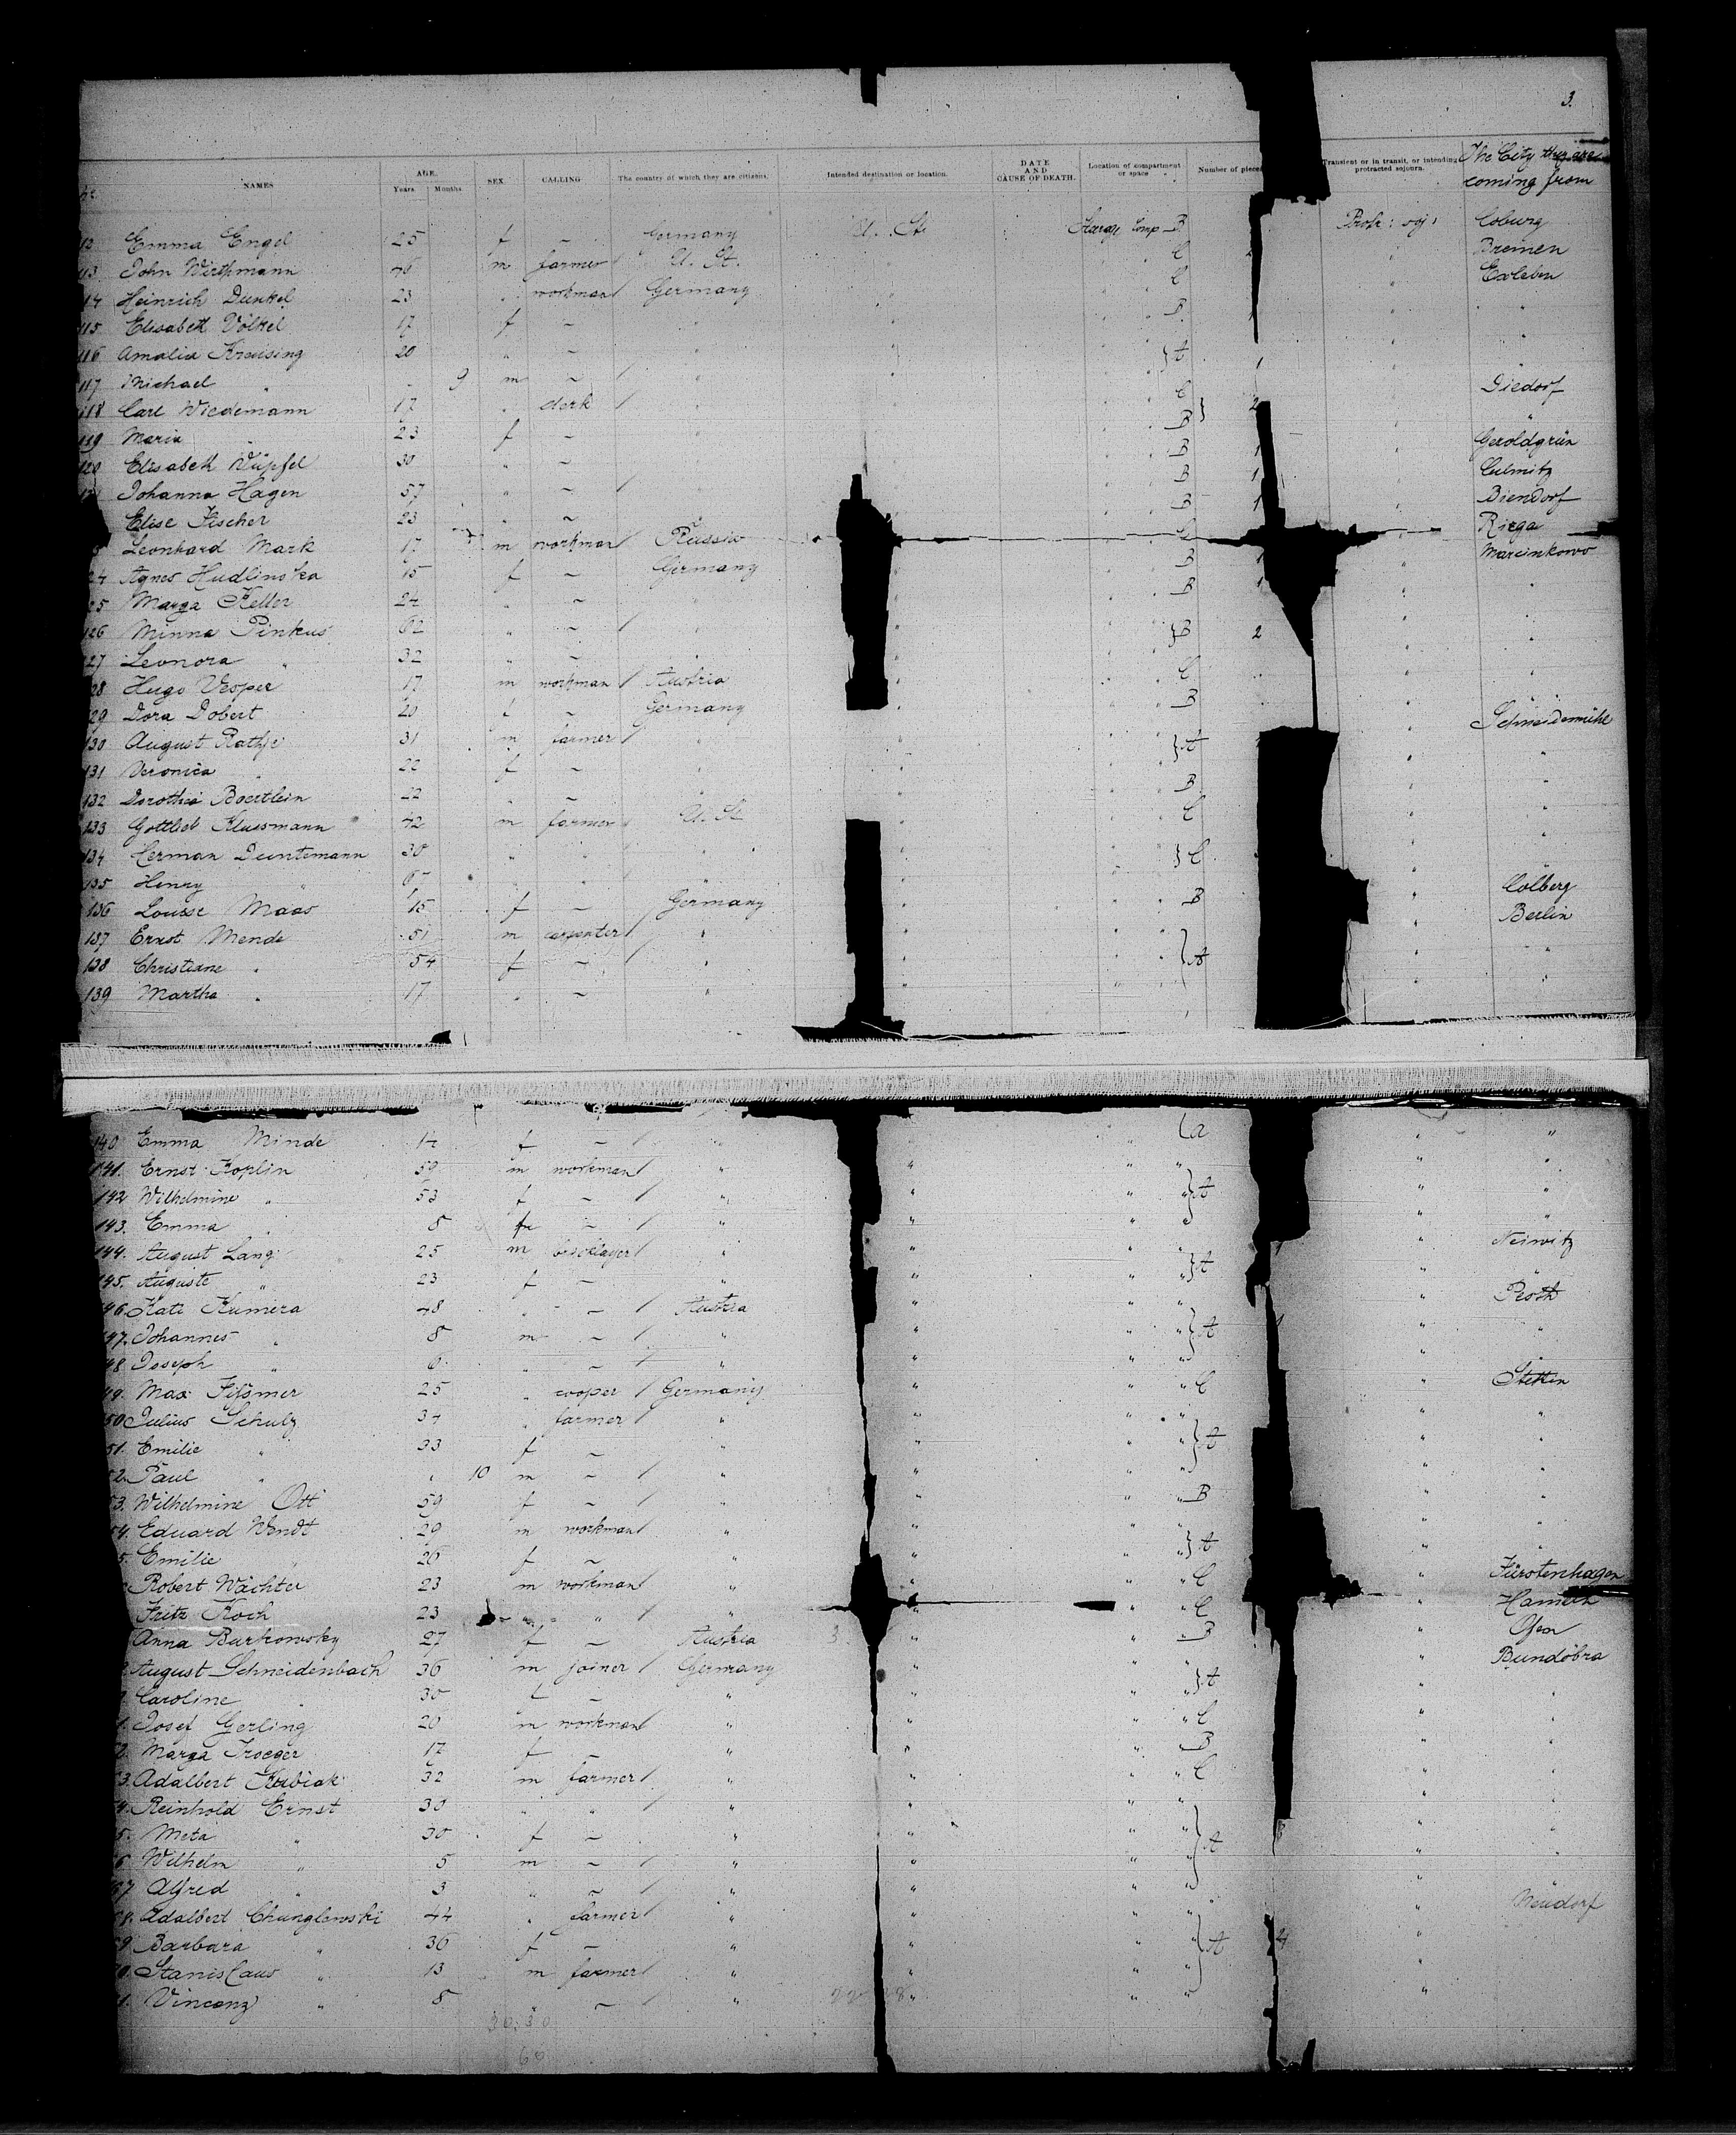 3.
NAMES AGE. Years Months SEX CALLING The country of which they are citizens. Intended destination or location. DATE AND CAUSE OF DEATH. Location of compartment or space Number of pieces Transient or in transit, or intending protracted sojourn. The City they are coming from
Emma Engel 25 f – Germany U. St. B Coburg
113 John Wirthmann m farmer U. St. C " Bremen
114 Heinrich Dunkel 23 " workman Germany C " Exleben
115 Elisabeth Völkel 17 f – " B " "
116 Amalia Kreusing 20 " – " } A 1
117 Michael " 9 m – "
118 Carl Wiedemann 17 " clerk " C } 2 Diedorf
119 Maria " 23 f – B "
120 Elisabeth Wüpfel 30 " – B 1 Geroldgrün
Johanna Hagen 57 " – B 1 Culmitz
Elise Fischer 23 " – B 1 Biendorf
Leonhard Mark 17 m workman Russia Riega
24 Agnes Hudlinska 15 f – Germany B Marcinkowo
25 Marga Keller 24 " – " B 1 "
126 Minna Pinkus 62 " – " } B 2 "
27 Leonora " 32 " – "
28 Hugo Vesper 17 m workman Austria C "
29 Dora Dobert 20 f – Germany B "
130 August Rathje 31 m farmer " } A Schneidemühl
131 Veronica " 22 f – " "
132 Dorothea Boertlein 22 " – " B "
133 Gottlieb Klussmann 72 m farmer U. St. C "
134 Herman Duntemann 30 " " " } C "
135 Henry " " " "
136 Louise Maas 15 f – Germany B Colberg
137 Ernst Mende 51 m carpenter " } A Berlin
138 Christiane " 54 f – " "
139 Martha " 17 " – " "
140 Emma Minde 14 f – " a "
141. Ernst Koplin 59 m workman " " "
142 Wilhelmine " 53 f – " } A "
143. Emma " 8 f – " "
144. August Lang 25 m bricklayer " } A 1 Neiwitz
145. Auguste " 23 f – " "
146. Kati Kumera 48 " – Austria Pesth
147. Johannes " 8 m – " } A "
48 Joseph " 6 " – " "
49. Max Filsmer 25 " cooper Germany C Stettin
50 Julius Schulz 34 " farmer " "
51. Emilie " 33 f – " } A "
52. Paul " " 10 m – " "
53. Wilhelmine Ott 59 f – " B "
54. Eduard Wendt 29 m workman " "
5. Emilie " 26 f – " } A "
Robert Wächter 23 m workman " C Fürstenhagen
Fritz Koch 23 " " " C Hameln
Anna Burkowsky 27 f – Austria B Ofen
August Schneidenbach 36 m joiner Germany Bundobra
Caroline " 30 f – " } A "
1. Josef Gerling 20 m workman " C "
2. Marga Troeger 17 f – " B "
3. Adalbert Kubiak 32 m farmer " C "
4. Reinhold Ernst 30 " " " "
5. Meta " 30 f – " "
6. Wilhelm " 5 m – " } A "
67 Alfred " 3 " – " "
68. Adalbert Chunglewski 44 " farmer " Neudorf
69 Barbara " 36 f – " } A 4
70. Stanislaus " 13 m farmer "
71. Vincenz " 8 " – "
30. 30
60